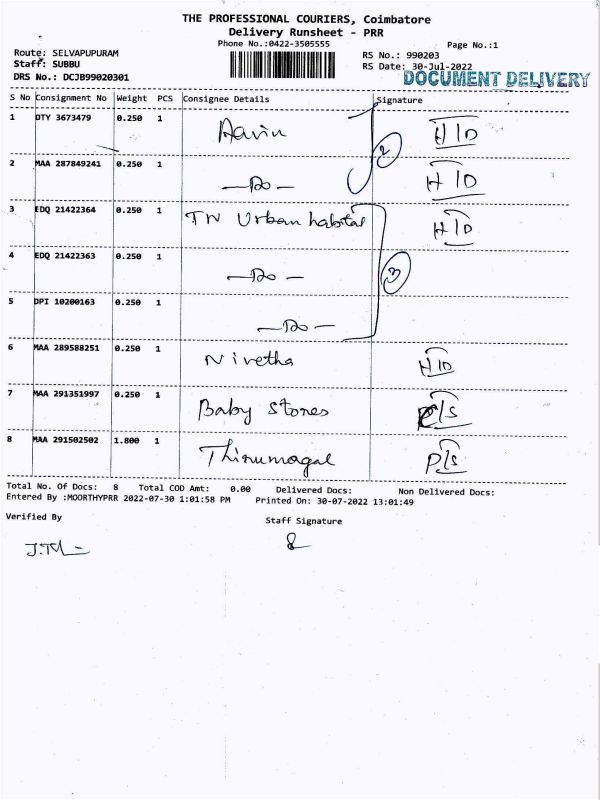 THE PROFESSIONAL COURIERS, Coimbatore
Delivery Runsheet - PRR
Phone No.:0422-3505555
Page No.:1
Route: SELVAPUPURAM
RS No.: 990203
Staff: SUBBU
RS Date: 30-Jul-2022
DRS No.: DCJB99020301
DOCUMENT DELIVERY
S No Consignment No Weight PCS Consignee Details Signature
1 DTY 3673479 0.250 1 Aavin H/D
2 MAA 287849241 0.250 1 —Do— H/D
2
3 EDQ 21422364 0.250 1 TN Urban habitat H/D
4 EDQ 21422363 0.250 1 —Do—
3
5 DPI 10200163 0.250 1 —Do—
6 MAA 289588251 0.250 1 Nivetha H/D
7 MAA 291351997 0.250 1 Baby Stores P/S
8 MAA 291502502 1.800 1 Thirumagal P/S
Total No. Of Docs: 8 Total COD Amt: 0.00 Delivered Docs: Non Delivered Docs:
Entered By :MOORTHYPRR 2022-07-30 1:01:58 PM Printed On: 30-07-2022 13:01:49
Verified By
Staff Signature